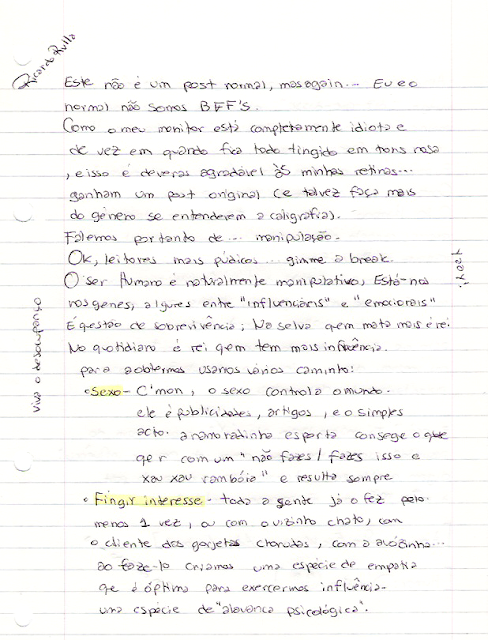 Ricardo
Este não é um post normal, mas again... Eu e o
normal não somos BFF's.
Como o meu monitor está completamente idiota e
de vez em quando fica todo tingido em tons rosa
, e isso é deveras agradável às minhas retinas...
ganham um post original (e talvez faça mais
do género se entenderem a caligrafia).
Falemos portanto de... manipulação.
Ok, leitores mais púdicos... gimme a break.
O ser Humano é naturalmente manipulativo, Está-nos
nos genes, algures entre "influenciáveis" e "emocionais"
É questão de sobrevivência; Na selva quem mata mais é rei.
No quotidiano é rei quem tem mais influência.
para a obtermos usamos vários caminhos:
• Sexo - C'mon, o sexo controla o mundo.
ele é publicidades, artigos, e o simples
acto. a namoradinha esperta consege o que
qer com um "não fazes / fazes isso e
xau xau rambóia" e resulta sempre
• Fingir interesse - toda a gente já o fez pelo
menos 1 vez, ou com o vizinho chato, com
o cliente das gorjetas chorudas, com a avózinha...
ao faze-lo criamos uma espécie de empatia
qe é óptima para exercermos influência.
uma espécie de "alavanca psicológica".
viva o desaupanço